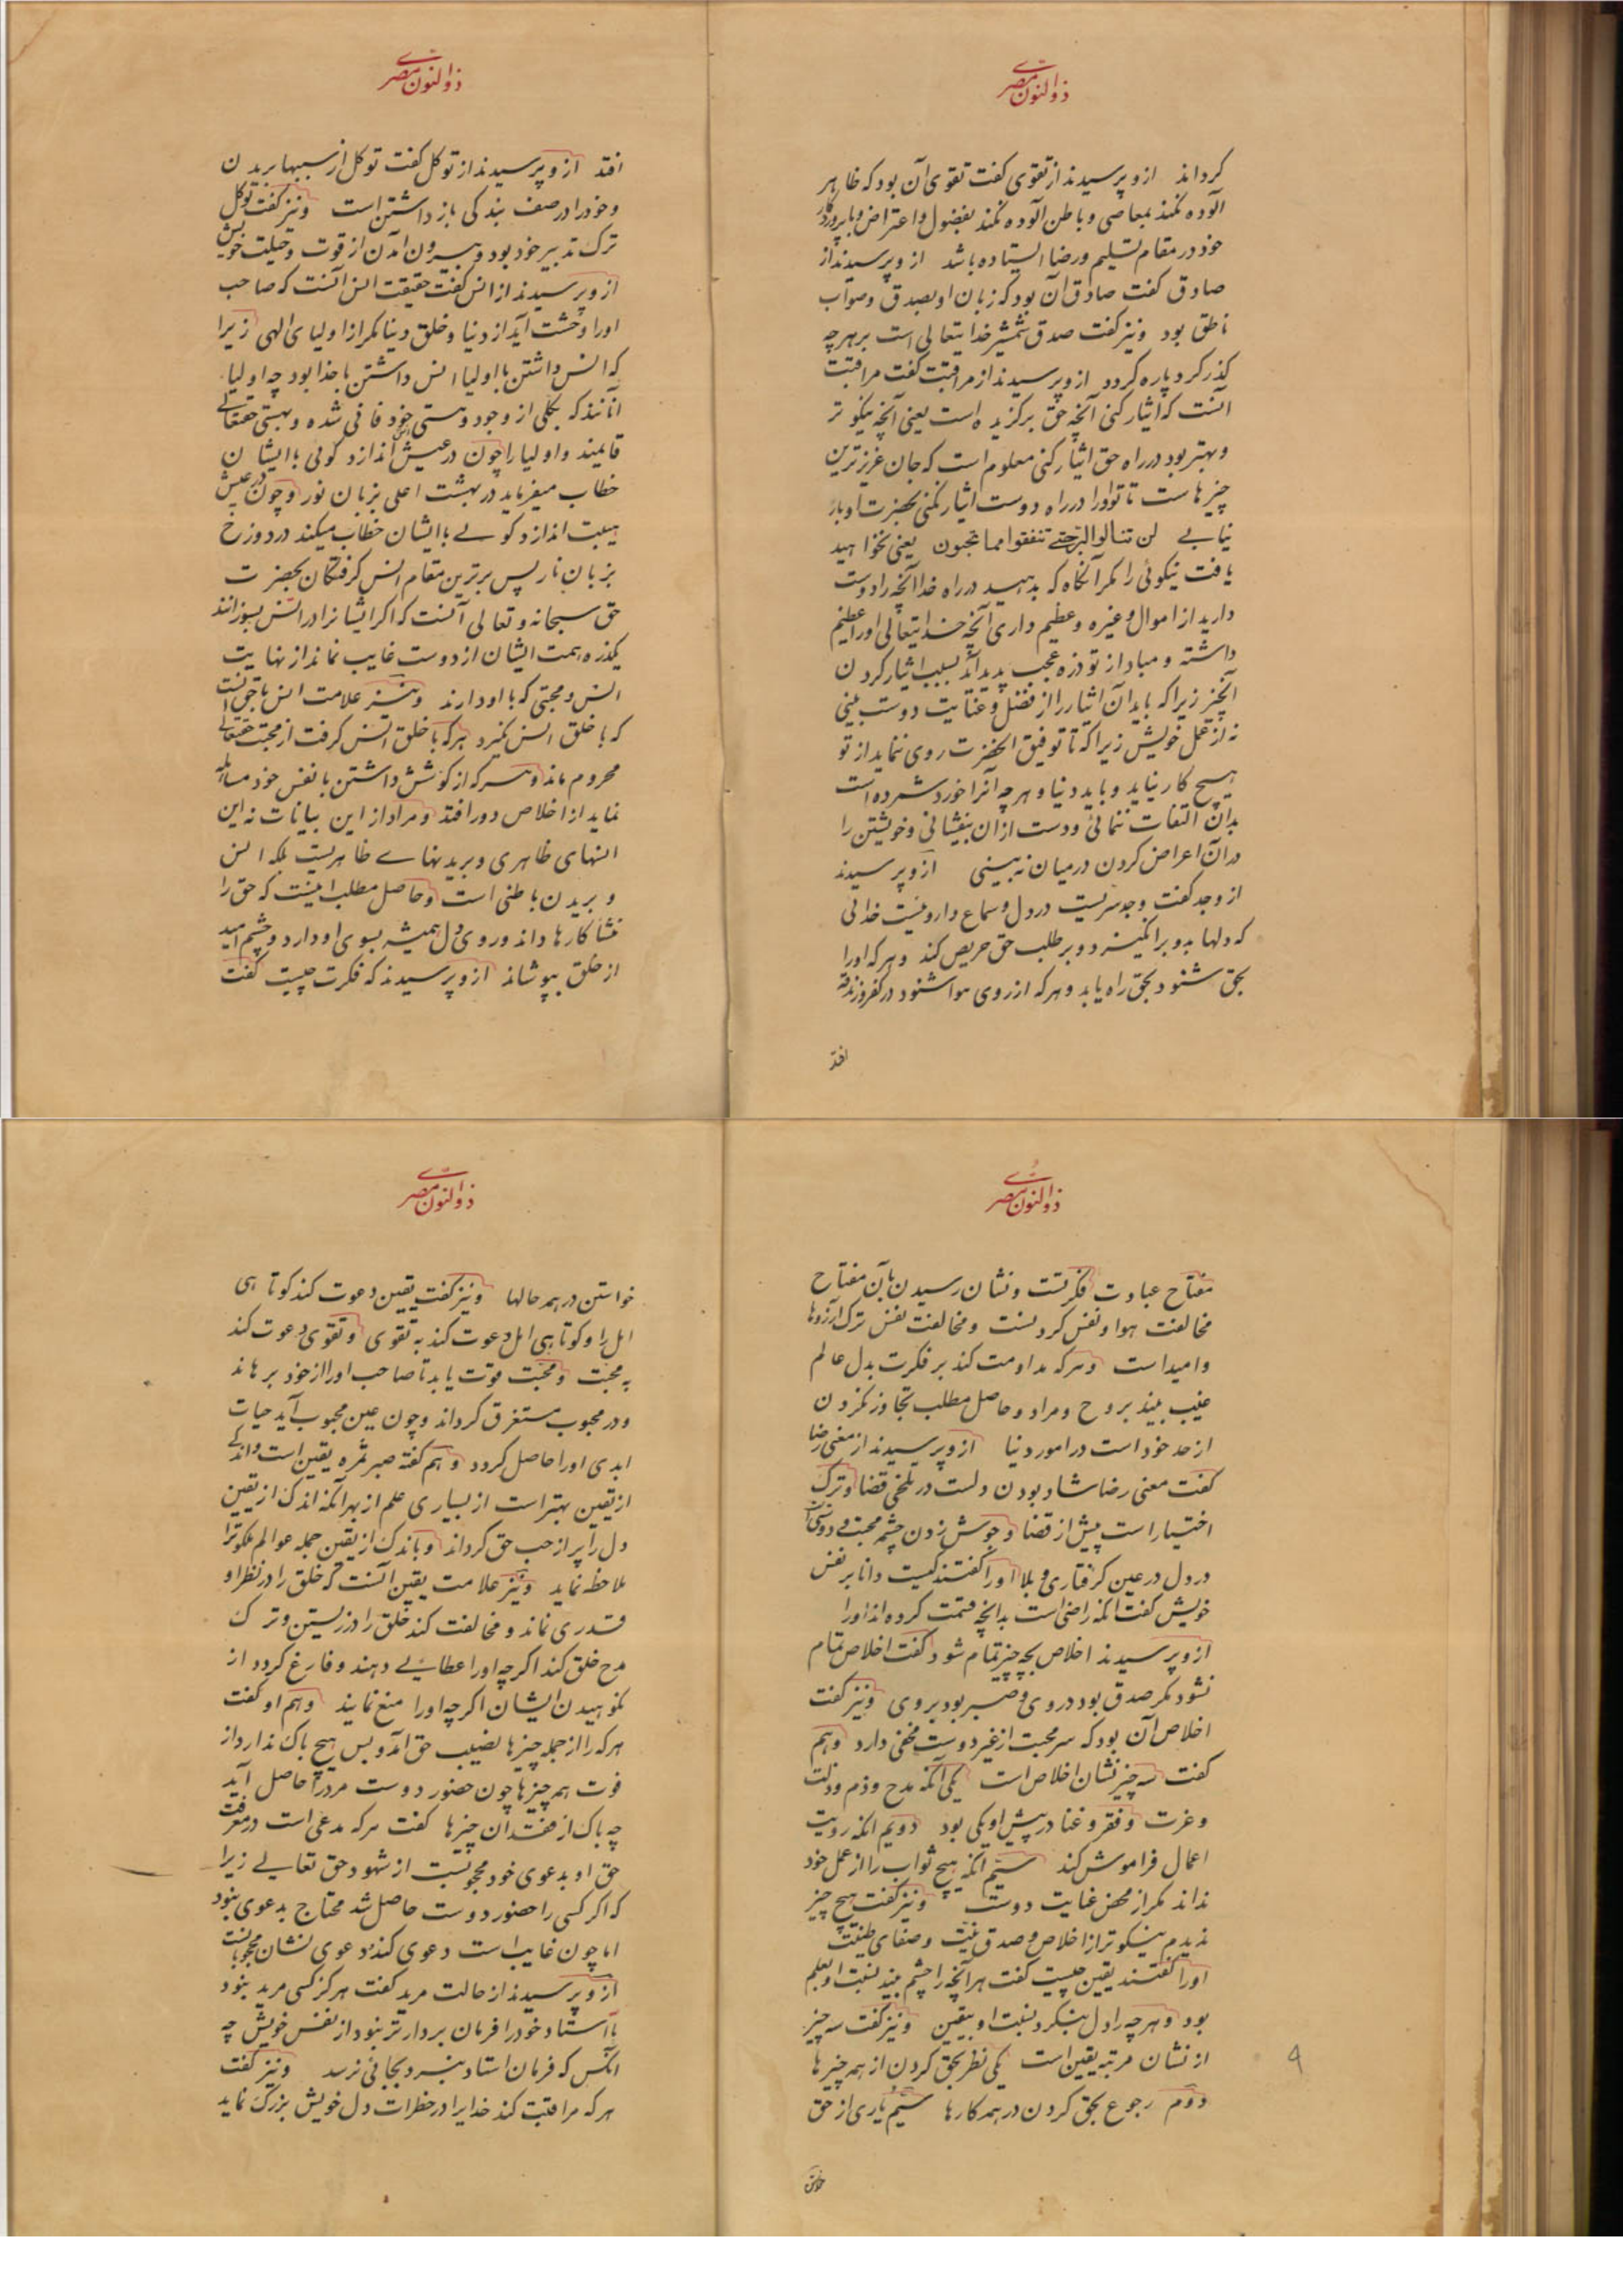 ذوالنون مصری
کرداند ازو پرسیدند از تقوی کفت تقوی آن بود که ظاهر
آلوده نکند بمعاصی و باطن آلوده نکند بفضول و اعتراض و با پروردکار
خود در مقام تسلیم و رضا ایستاده باشد ازو پرسیدند از
صادق کفت صادق آن بود که زبان او بصدق و صواب
ناطق بود و نیز کفت صدق شمشیر خدایتعالی است بر هر چه
کذر کرد پاره کردد ازو پرسیدند از مراقبت کفت مراقبت
آنست که ایثار کنی آنچه حق برکزیده است یعنی آنچه نیکوتر
و بهتر بود در راه حق ایثار کنی معلوم است که جان عزیزترین
چیزهاست تا تو او را در راه دوست ایثار نکنی بحضرت او بار
نیابے لن تنالوا البر حتے تنفقوا مما تحبون یعنی نخواهید
یافت نیکوئی را مکر آنکاه که بدهید در راه خدا آنچه را دوست
دارید از اموال و غیره و عظیم داری آنچه خدایتعالی او را عظیم
داشته و مباد از تو ذره عجب پدید آید بسبب ایثار کردن
آنچیز زیرا که باید آن ایثار را از فضل و عنایت دوست بینی
نه از عمل خویش زیرا که تا توفیق آنحضرت روی ننماید از تو
هیچ کار نیاید و باید دنیا و هر چه آنرا خورد شمرده است
بدان التفات ننمائی و دست از ان بیفشانی و خویشتن را
در آن اعراض کردن در میان نه بینی ازو پرسیدند
از وجد کفت وجد سریست در دل و سماع واردیست خدائی
که دلها بدو برانکیزد و بر طلب حق حریص کند و هر که او را
بحق شنود بحق راه یابد و هر که از روی هوا شنود در کفر و زندقه
افتد
ذوالنون مصری
افتد ازو پرسیدند از توکل کفت توکل از سببها بریدن
و خود را در صف بندکی باز داشتن است و نیز کفت توکل
ترک تدبیر خود بود و بیرون آمدن از قوت و حیلت خویش
ازو پرسیدند از انس کفت حقیقت انس آنست که صاحب
او را وحشت آید از دنیا و خلق دنیا مکر از اولیای الهی زیرا
که انس داشتن با اولیا انس داشتن با خدا بود چه اولیا
آنانند که بکلی از وجود و هستی خود فانی شده و بهستی حقتعالے
قایمند و اولیا را چون در عیش انس اندازد کوئی با ایشان
خطاب میفرماید در بهشت اعلی بزبان نور و چون در عیش
هیبت اندازد کوئے با ایشان خطاب میکند در دوزخ
بزبان نار پس برترین مقام انس کرفتکان بحضرت
حق سبحانه و تعالی آنست که اکر ایشانرا در آتش بسوزانند
یکذره همت ایشان از دوست غایب نماند از نهایت
انس و محبتی که با او دارند و نیز علامت انس با حق آنست
که با خلق انس نکیرد هر که با خلق انس کرفت از محبت حقتعالے
محروم ماند و هر که از کوشش داشتن با نفس خود مساهله
نماید از اخلاص دور افتد و مراد از این بیانات نه این
انسهای ظاهری و بریدنهاے ظاهریست بلکه انس
و بریدن باطنی است و حاصل مطلب اینست که حق را
منشا کارها داند و روی دل همیشه بسوی او دارد و چشم امید
از خلق بپوشاند ازو پرسیدند که فکرت چیست کفت
ذوالنون مصری
مفتاح عبادت فکرتست و نشان رسیدن بآن مفتاح
مخالفت هوا و نفس کردنست و مخالفت نفس ترک آرزوها
و امیداست و هر که مداومت کند بر فکرت بدل عالم
غیب بیند بروح و مراد و حاصل مطلب تجاوز نکردن
از حد خود است در امور دنیا ازو پرسیدند از معنی رضا
کفت معنی رضا شاد بودن دلست در تلخی قضا و ترک
اختیار است پیش از قضا و جوش زدن چشمه محبت و دوستی
در دل در عین کرفتاری و بلا او را کفتند کیست دانا بر نفس
خویش کفت آنکه راضی است بدانچه قسمت کرده اند او را
ازو پرسیدند اخلاص بچه چیز تمام شود کفت اخلاص تمام
نشود مکر صدق بود در وی و صبر بود بر وی و نیز کفت
اخلاص آن بود که سر محبت از غیر دوست مخفی دارد و هم
کفت سه چیز نشان اخلاص است یکی آنکه مدح و ذم و ذلت
و عزت و فقر و غنا در پیش او یکی بود دویم آنکه رویت
اعمال فراموش کند سیم آنکه هیچ ثواب را از عمل خود
نداند مکر از محض عنایت دوست و نیز کفت هیچ چیز
ندیدم نیکوتر از اخلاص و صدق نیت و صفای طینت
او را کفتند یقین چیست کفت هر آنچه را چشم بیند نسبت او بعلم
بود و هر چه را دل بنکرد نسبت او بیقین و نیز کفت سه چیز
از نشان مرتبه یقین است یکی نظر بحق کردن از همه چیزها
دوم رجوع بحق کردن در همه کارها سیم یاری از حق
خواستن
۹
ذوالنون مصری
خواستن در همه حالها و نیز کفت یقین دعوت کند کوتاهی
امل را و کوتاهی امل دعوت کند به تقوی و تقوی دعوت کند
به محبت و محبت قوت یابد تا صاحب او را از خود برهاند
و در محبوب مستغرق کرداند و چون عین محبوب آید حیات
ابدی او را حاصل کردد و هم کفته صبر ثمره یقین است و اندکے
از یقین بهتر است از بسیاری علم از بهر آنکه اندک از یقین
دل را پر از حب حق کرداند و باندک از یقین جمله عوالم ملکوترا
ملاحظه نماید و نیز علامت یقین آنست که خلق را در نظر او
قدری نماند و مخالفت کند خلق را در زیستن و ترک
مدح خلق کند اکر چه او را عطائے دهند و فارغ کردد از
نکوهیدن ایشان اکر چه او را منع نمایند و هم او کفت
هر که را از جمله چیزها نصیب حق آمد و بس هیچ باک ندارد از
فوت همه چیزها چون حضور دوست مر در را حاصل آید
چه باک از فقدان چیزها کفت هر که مدعی است در معرفت
حق او بدعوی خود محجوبست از شهود حق تعالے زیرا
که اکر کسی را حضور دوست حاصل شد محتاج بدعوی نبود
اما چون غایب است دعوی کند و دعوی نشان محجوبانست
ازو پرسیدند از حالت مرید کفت هرکز کسی مرید نبود
تا استاد خود را فرمان بردارتر نبود از نفس خویش چه
آنکس که فرمان استاد نبرد بجائی نرسد و نیز کفت
هر که مراقبت کند خدایرا در خطرات دل خویش بزرک نماید